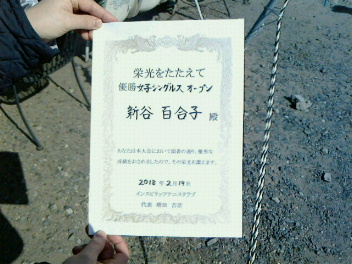 栄光をたたえて
優勝 女子シングルス オープン
新谷 百合子 殿
あなたは本大会において頭書の通り、優秀な
成績をおさめましたので、その栄光を讃えます。
2018年2月14日
インスピリッツテニスクラブ
代表